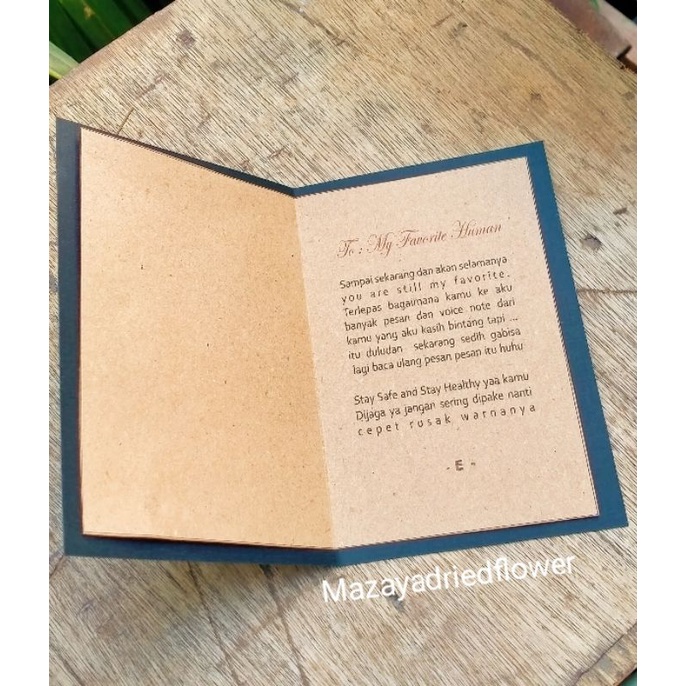 To : My Favorite Human
Sampai sekarang dan akan selamanya
you are still my favorite.
Terlepas bagaimana kamu ke aku
banyak pesan dan voice note dari
kamu yang aku kasih bintang tapi ....
itu duludan sekarang sedih gabisa
lagi baca ulang pesan pesan itu huhu
Stay Safe and Stay Healthy yaa kamu
Dijaga ya jangan sering dipake nanti
cepet rusak warnanya
- E -
Mazayadriedflower